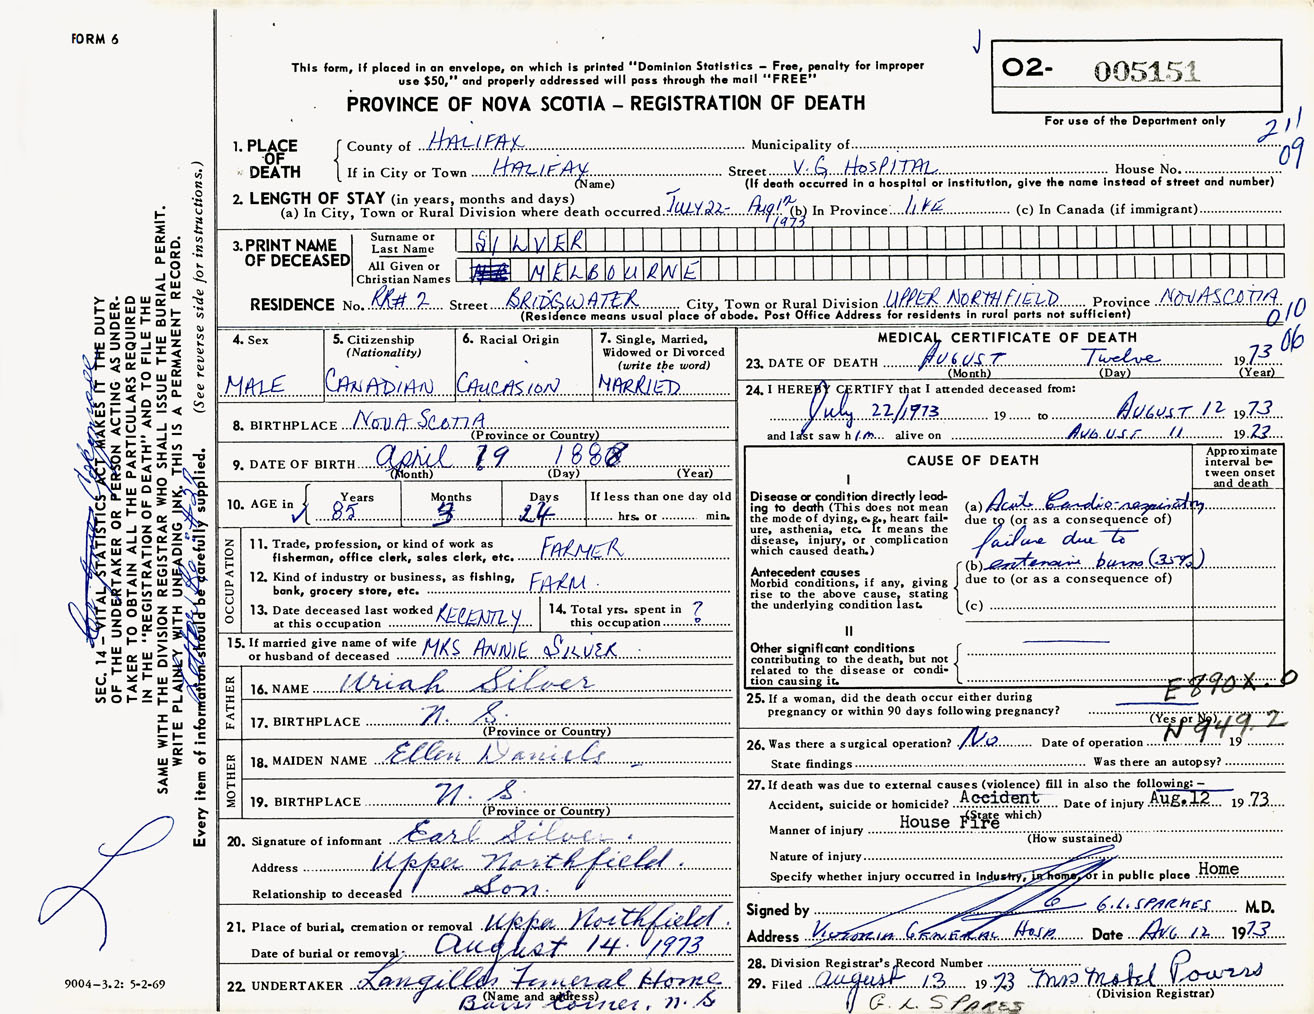 FORM 6
This form, if placed in an envelope, on which is printed "Dominion Statistics – Free, penalty for improper
use $50," and properly addressed will pass through the mail "FREE"
PROVINCE OF NOVA SCOTIA – REGISTRATION OF DEATH
O2- 005151
For use of the Department only
211
09
1. PLACE OF DEATH
County of HALIFAX Municipality of
If in City or Town HALIFAX Street V.G HOSPITAL House No.
(Name) (If death occurred in a hospital or institution, give the name instead of street and number)
2. LENGTH OF STAY (in years, months and days)
(a) In City, Town or Rural Division where death occurred JULY 22- Aug 12 1973 (b) In Province LIFE (c) In Canada (if immigrant)
3. PRINT NAME OF DECEASED
Surname or Last Name SILVER
All Given or Christian Names MELBOURNE
RESIDENCE No. RR#2 Street BRIDGWATER City, Town or Rural Division UPPER NORTHFIELD Province NOVA SCOTIA
(Residence means usual place of abode. Post Office Address for residents in rural parts not sufficient)
010
06
4. Sex MALE
5. Citizenship (Nationality) CANADIAN
6. Racial Origin CAUCASION
7. Single, Married, Widowed or Divorced (write the word) MARRIED
8. BIRTHPLACE NOVA SCOTIA
(Province or Country)
9. DATE OF BIRTH April 19 1888
(Month) (Day) (Year)
10. AGE in Years 85 Months 3 Days 24 If less than one day old
hrs. or min.
OCCUPATION
11. Trade, profession, or kind of work as
fisherman, office clerk, sales clerk, etc. FARMER
12. Kind of industry or business, as fishing,
bank, grocery store, etc. FARM
13. Date deceased last worked
at this occupation RECENTLY
14. Total yrs. spent in
this occupation ?
15. If married give name of wife
or husband of deceased MRS ANNIE SILVER
FATHER
16. NAME Uriah Silver
17. BIRTHPLACE N. S.
(Province or Country)
MOTHER
18. MAIDEN NAME Ellen Daniels
19. BIRTHPLACE N. S.
(Province or Country)
20. Signature of informant Earl Silver.
Address Upper Northfield.
Relationship to deceased Son.
21. Place of burial, cremation or removal Upper Northfield.
Date of burial or removal August 14. 1973
22. UNDERTAKER Langilles Funeral Home
(Name and address)
Corner, N. S
MEDICAL CERTIFICATE OF DEATH
23. DATE OF DEATH AUGUST Twelve 1973
(Month) (Day) (Year)
24. I HEREBY CERTIFY that I attended deceased from:
July 22/1973 19 to AUGUST 12 1973
and last saw him alive on AUGUST 11 1973
CAUSE OF DEATH
Approximate interval between onset and death
I
Disease or condition directly leading to death (This does not
the mode of dying, e.g., heart failure, asthenia, etc. It means the
disease, injury, or complication
which caused death.)
(a) Acute Cardio-respiratory
due to (or as a consequence of)
failure due to
Antecedent causes
Morbid conditions, if any, giving
rise to the above cause, stating
the underlying condition last.
(b) extensive burns (35%)
due to (or as a consequence of)
(c)
II
Other significant conditions
contributing to the death, but not
related to the disease or condition causing it.
E890X.0
25. If a woman, did the death occur either during
pregnancy or within 90 days following pregnancy?
(Yes or No)
N949.2
26. Was there a surgical operation? No Date of operation 19
State findings Was there an autopsy?
27. If death was due to external causes (violence) fill in also the following: –
Accident, suicide or homicide? Accident Date of injury Aug.12 1973
(State which)
Manner of injury House Fire
(How sustained)
Nature of injury
Specify whether injury occurred in industry, in home, or in public place Home
Signed by G.L. SPARKES M.D.
Address VICTORIA GENERAL HOSP. Date AUG 12 1973
28. Division Registrar's Record Number
29. Filed August 13 1973 Mrs Powers
(Division Registrar)
G. L. SPARES
SEC. 14 – VITAL STATISTICS ACT MAKES IT THE DUTY
OF THE UNDERTAKER OR PERSON ACTING AS UNDER-
TAKER TO OBTAIN ALL THE PARTICULARS REQUIRED
IN THE "REGISTRATION OF DEATH" AND TO FILE THE
SAME WITH THE DIVISION REGISTRAR WHO SHALL ISSUE THE BURIAL PERMIT.
WRITE PLAINLY WITH UNFADING INK. THIS IS A PERMANENT RECORD.
Every item of information should be carefully supplied. (See reverse side for instructions.)
9004-3.2: 5-2-69